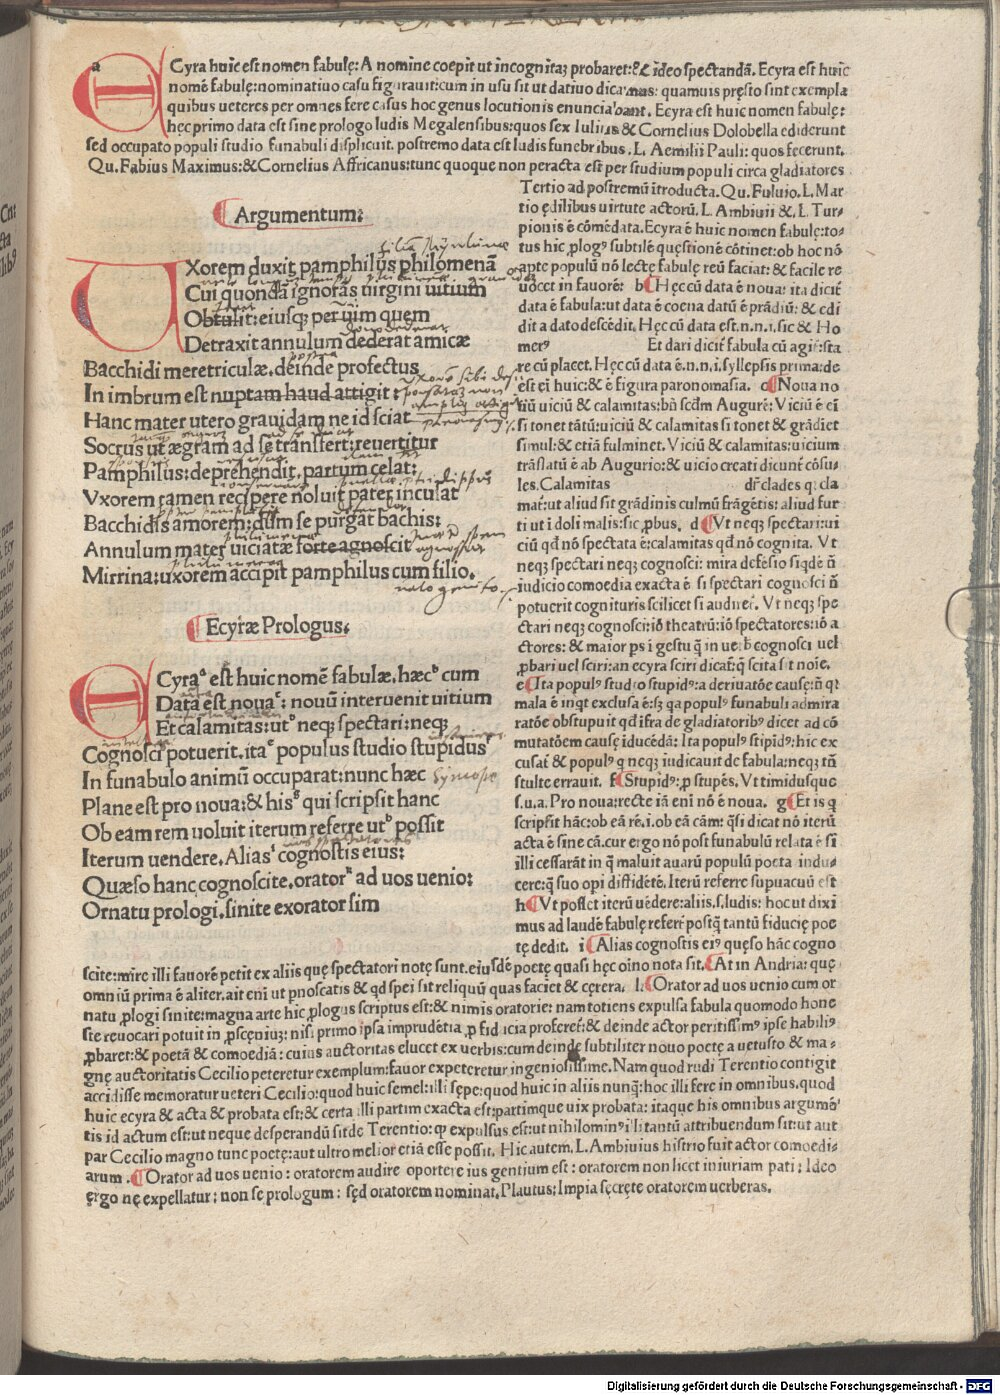 ECyra huic est nomen fabulę: A nomine coepit ut incognitaȝ probaret: & ideo spectandā. Ecyra est huic
nomē fabulę: nominatiuo casu figurauit: cum in usu sit ut datiuo dicamus: quamuis pręsto sint exempla
quibus ueteres per omnes fere casus hoc genus locutionis enunciabant. Ecyra est huic nomen fabulę:
hęc primo data est sine prologo ludis Megalensibus: quos sex Iulius & Cornelius Dolobella ediderunt
sed occupato populi studio funabuli displicuit. postremo data est ludis funebribus. L. Aemilii Pauli: quos fecerunt.
Qu. Fabius Maximus: & Cornelius Affricanus: tunc quoque non peracta est per studium populi circa gladiatores
Argumentum:
VXorem duxit pamphilus philomenā
Cui quondā ignorās uirgini uitium
Obtulit: eiusqȝ per uim quem
Detraxit annulum dederat amicæ
Bacchidi meretriculæ. deinde profectus
In imbrum est nuptam haud attigit:
Hanc mater utero grauidam ne id sciat
Socrus ut ægram ad se transfert: reuertitur
Pamphilus: deprehendit. partum celat:
Vxorem tamen recipere noluit pater inculat
Bacchidis amorem: dum se purgat bachis:
Annulum mater uiciatæ forte agnoscit
Mirrina: uxorem accipit pamphilus cum filio.
Ecyræ Prologus.
ECyra est huic nomē fabulæ, hæc cum
Data est noua: nouū interuenit uitium
Et calamitas: ut neqȝ spectari: neqȝ
Cognosci potuerit. ita populus studio stupidus
In funabulo animū occuparat: nunc hæc
Plane est pro noua: & his qui scripsit hanc
Ob eam rem uoluit iterum referre ut possit
Iterum uendere. Alias cognostis eius:
Quæso hanc cognoscite. orator ad uos uenio:
Ornatu prologi. sinite exorator sim
Tertio ad postremū ītroducta. Qu. Fuluio. L. Mar
tio ędilibus uirtute actorū. L. Ambiuii &. L. Tur-
pionis ē cōmēdata. Ecyra ē huic nomen fabulę: to-
tus hic ꝓlogꝰ subtilē quęstionē cōtinet: ob hoc nō
apte populū nō lecte fabulę reū faciat: & facile re
uocet in fauorē: b Hęc cū data ē noua: ita dicit̄
data ē fabula: ut data ē coena datū ē prādiū: & edi
dit a dato descēdit. Hęc cū data est. n. n. i. sic & Ho
merꝰ Et dari dicit̄ fabula cū agit̄: sta
re cū placet. Hęc cū data ē. n. n. i. syllepsis prima: de
est ei huic: & ē figura paronomasia. c Noua no
tiū uiciū & calamitas: bn̄ scdm Augurē: Viciū ē ei
si tonet tātū: uiciū & calamitas si tonet & grādiet
simul: & etiā fulminet. Viciū & calamitas: uicium
trāslatū ē ab Augurio: & uicio creati dicunt̄ cōsu-
les. Calamitas dr̄ clades q: cla
mat̄: ut aliud sit grādinis culmū frāgētis: aliud fur
ti ut i doli malis: sic ꝓbus. d Vt neqȝ spectari: ui
ciū qd̄ nō spectata ē: calamitas qd̄ nō cognita. Vt
neqȝ spectari neqȝ cognosci: mira defēsio siqdē ī
iudicio comoedia exacta ē si spectari cognosci ñ
potuerit cognituris scilicet si audiret̄. Vt neqȝ spe
ctari neqȝ cognosci: iō theatrū: iō spectatores: iō a
ctores: & maior ps i gestu q̄ in uerb cognosci uel
ꝓbari uel sciri: an ecyra sciri dicat̄: q̄ scita sit noīe.
e Ita populꝰ studio stupidꝰ: a deriuatōe causę: ñ qꝛ
mala ē inqt exclusa ē: sȝ qa populꝰ funabuli admira
ratōe obstupuit qd̄ ifra de gladiatoribꝰ dicet ad cō
mutatōem causę īducēdā: Ita populꝰ stīpidꝰ: hic ex
cusat̄ & populꝰ q neqȝ iudicauit de fabula: neqȝ tñ
stulte errauit. f Stupidꝰ: p stupēs. Vt timidusque
s. u. a. Pro noua: recte iā eni nō ē noua. g Et is q
scripsit hāc: ob eā rē. i. ob eā cām: q̄si dicat nō iterū
acta ē sine cā. cur ergo nō post funabulū relata ē si
illi cessarāt in q maluit auarū populū poeta indu-
cere: q̄ suo opi diffidētē. Iterū referre supuacuū est
h Vt posset iterū uēdere: aliis. s. ludis: hoc ut dixi
mus ad laudē fabulę refert̄ postq̄ tantū fiducię poe
tę dedit. i Alias cognostis eiꝰ quęso hāc cogno
scite: mire illi fauorē petit ex aliis quę spectatori notę sunt. eiusdē poetę quasi hęc oīno nota sit. At in Andria: quę
omniū prima ē aliter. ait eni ut pnoscatis & qd spei sit reliquū quas faciet & cętera. l Orator ad uos uenio cum or
natu ꝓlogi sinite: magna arte hic ꝓlogus scriptus est: & nimis oratorie: nam totiens expulsa fabula quomodo hone
ste reuocari potuit in ꝓscęniuȝ: nisi primo ipsa imprudētia ꝓ fiducia proferet̄: & deinde actor peritissimꝰ ipse habilꝰ
ꝓbaret: & poetā & comoediā: cuius auctoritas elucet ex uerbis: cum deinde subtiliter nouo poetę a uetusto & ma-
gnę auctoritatis Cecilio peteretur exemplum: fauor expeteretur ingeniosissime. Nam quod rudi Terentio contigit
accidisse memoratur ueteri Cecilio: quod huic semel: illi sępe: quod huic in aliis nunqȝ: hoc illi fere in omnibus. quod
huic ecyra & acta & probata est: & certa illi partim exacta est: partimque uix probata: itaque his omnibus argumē
tis id actum est: ut neque desperandū sit de Terentio: qꝫ expulsus est: ut nihilominꝰ illi tantū attribuendum sit: ut aut
par Cecilio magno tunc poetę: aut ultro melior etiā esse possit. Hic autem. L. Ambiuius histrio fuit actor comoedi-
arum. Orator ad uos uenio: oratorem audire oportere ius gentium est: oratorem non licet iniuriam pati: Ideo
ergo ne expellatur: non se prologum: sęd oratorem nominat. Plautus: Impia sęcrete oratorem uerberas.
Digitalisierung gefördert durch die Deutsche Forschungsgemeinschaft - DFG